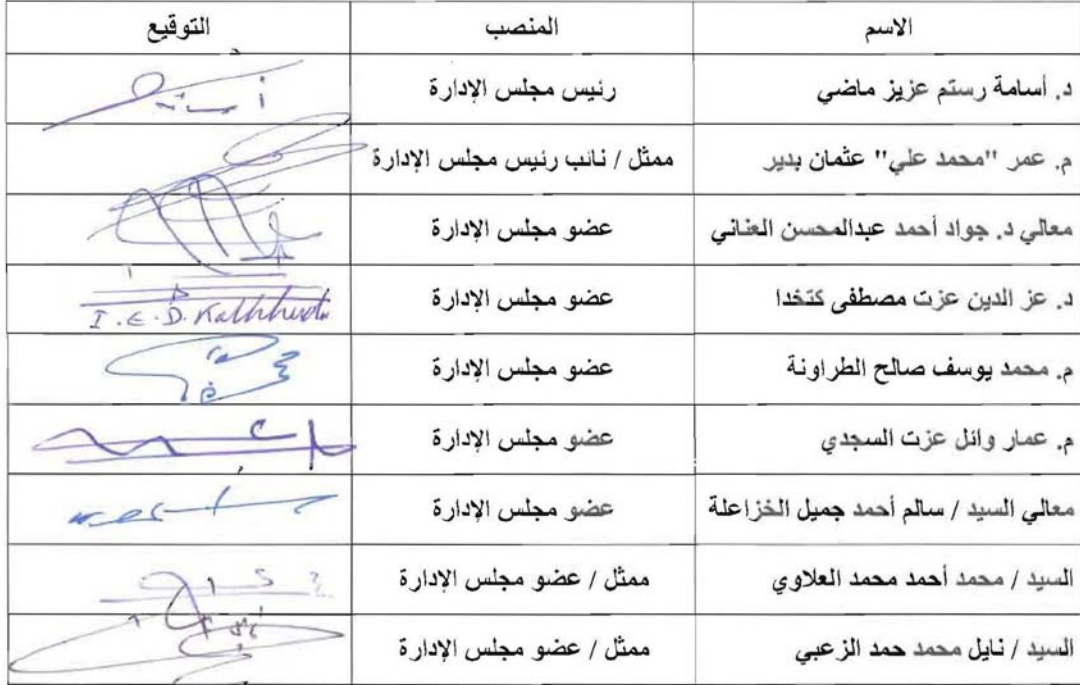 الاسم المنصب التوقيع
د. أسامة رستم عزيز ماضي رئيس مجلس الإدارة
م. عمر "محمد علي" عثمان بدير ممثل / نائب رئيس مجلس الإدارة
معالي د. جواد أحمد عبدالمحسن العناني عضو مجلس الإدارة
د. عز الدين عزت مصطفى كتخدا عضو مجلس الإدارة I.E.D.
م. محمد يوسف صالح الطراونة عضو مجلس الإدارة
م. عمار وائل عزت السجدي عضو مجلس الإدارة
معالي السيد / سالم أحمد جميل الخزاعلة عضو مجلس الإدارة
السيد / محمد أحمد محمد العلاوي ممثل / عضو مجلس الإدارة
السيد / نايل محمد حمد الزعبي ممثل / عضو مجلس الإدارة